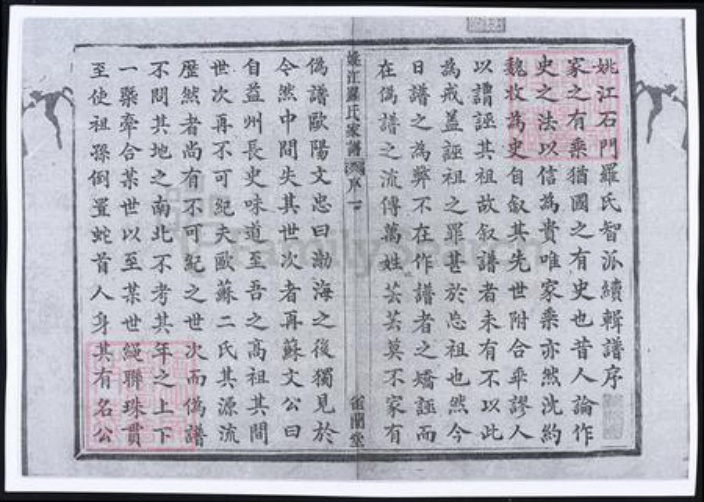 姚江石門羅氏智派續輯譜序
家之有乘猶國之有史也昔人論作
史之法以信為貴唯家乘亦然沈約
魏收為史自叙其先世附合乖謬人
以謂誣其祖故叙譜者未有不以此
為戒蓋誣祖之罪甚於忘祖也然今
日譜之為弊不在作譜者之矯誣而
在偽譜之流傳萬姓芸芸莫不家有
姚江羅氏家譜 序 一
偽譜歐陽文忠曰渤海之後獨見於
今然中間失其世次者再蘇文公曰
自益州長史味道至吾之高祖其間
世次再不可紀夫歐蘇二氏其源流
歷然者尚有不可紀之世次而偽譜
不問其地之南北不考其年之上下
一槩牽合某世以至某世繩聯珠貫
至使祖孫倒置蛇首人身其有名公